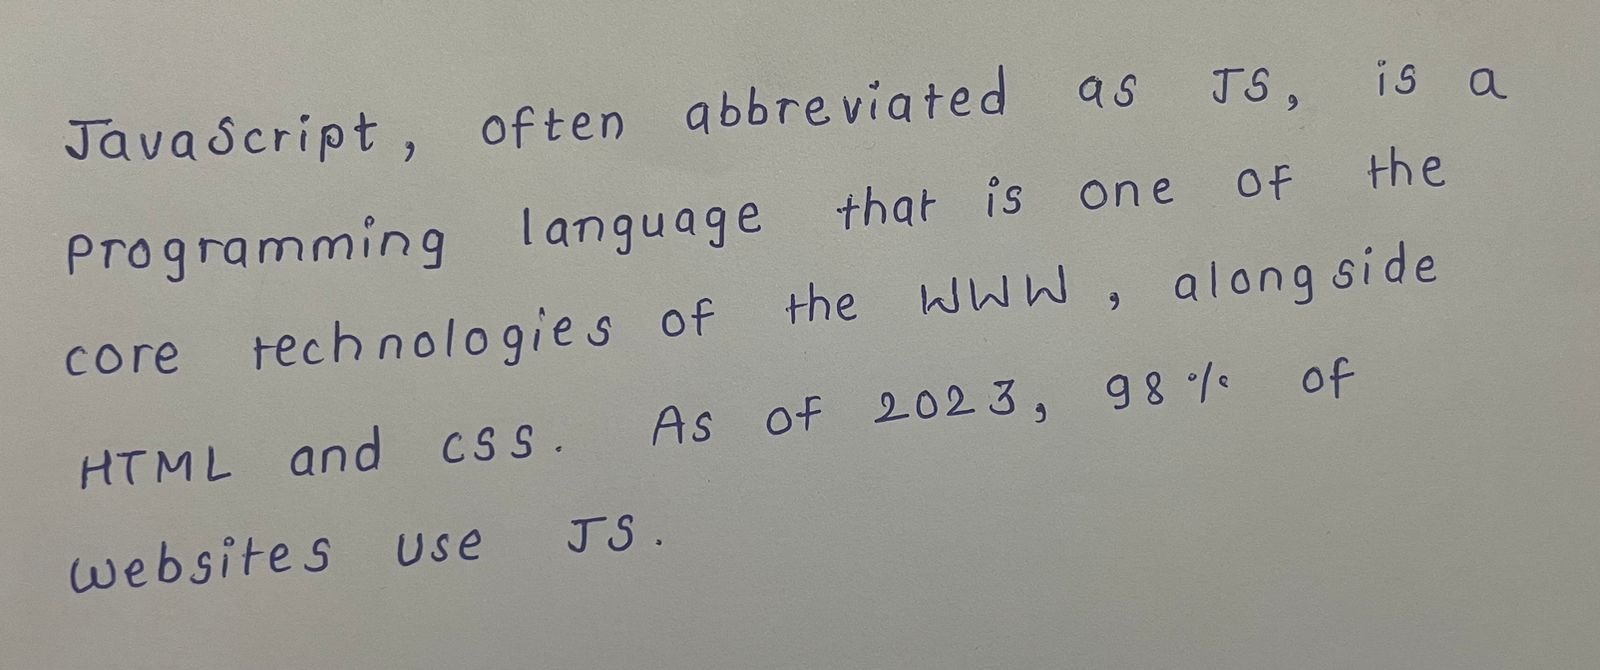 JavaScript, often abbreviated as JS, is a
programming language that is one of the
core technologies of the WWW, alongside
HTML and CSS. As of 2023, 98% of
websites use JS.